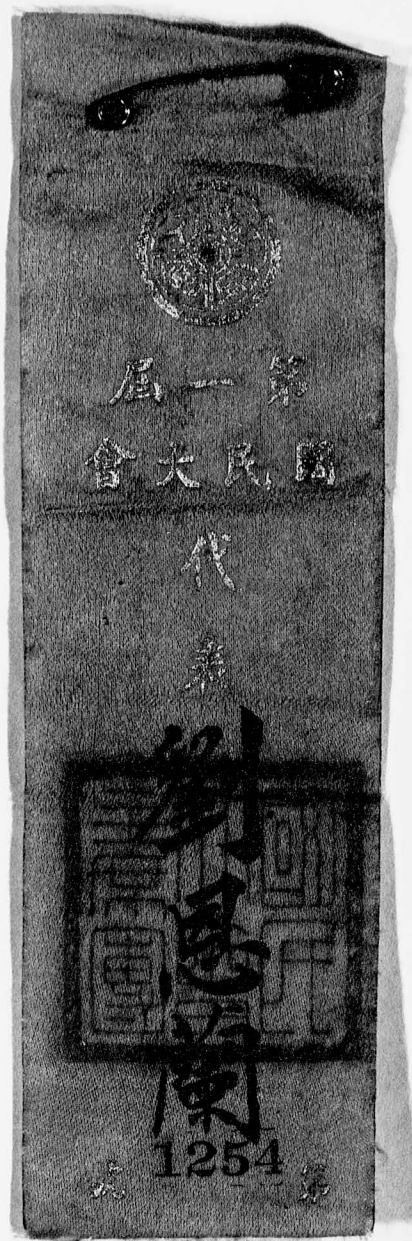 第一屆
國民大會
代
表
劉
恩
蘭
1254
第